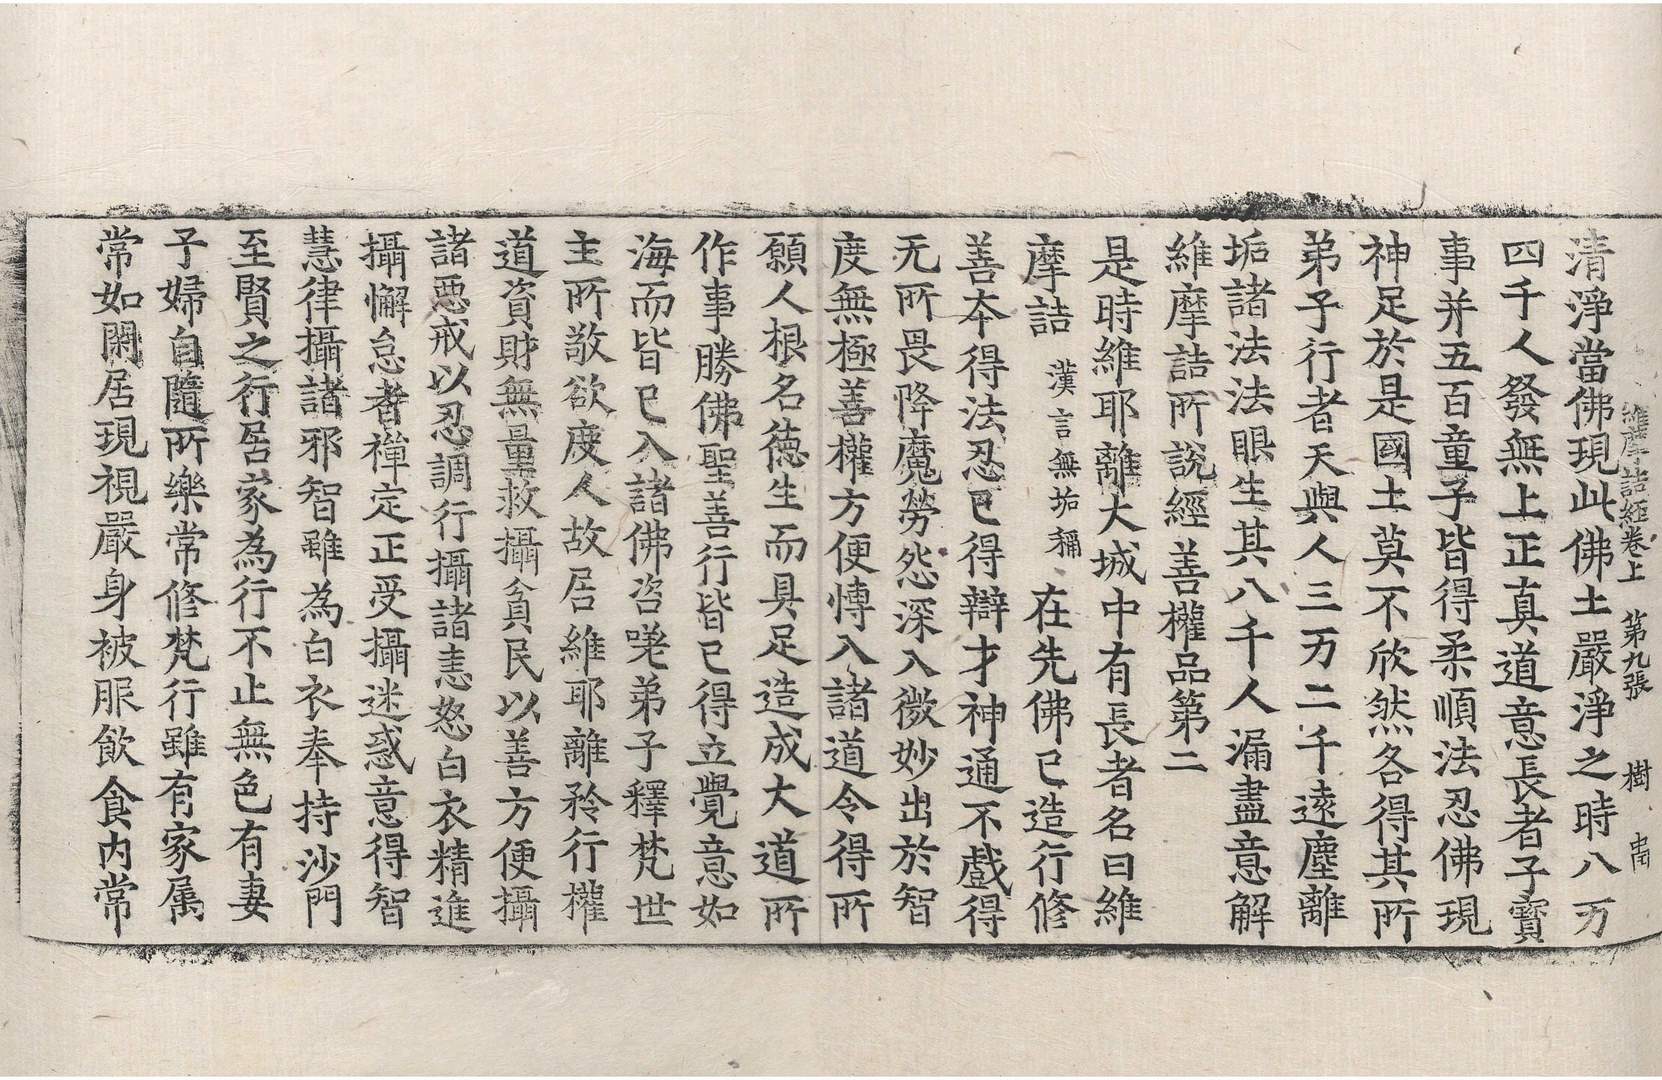 維摩詰經卷上 第九張 樹
清淨當佛現此佛土嚴淨之時八万
四千人發無上正真道意長者子寶
事并五百童子皆得柔順法忍佛現
神足於是國土莫不欣然各得其所
弟子行者天與人三万二千遠塵離
垢諸法法眼生其八千人漏盡意解
維摩詰所說經善權品第二
是時維耶離大城中有長者名曰維
摩詰 漢言無垢稱 在先佛已造行修
善本得法忍已得辯才神通不戲得
无所畏降魔勞怨深入微妙出於智
度無極善權方便博入諸道令得所
願人根名德生而具足造成大道所
作事勝佛聖善行皆已得立覺意如
海而皆已入諸佛咨嗟弟子釋梵世
主所敬欲度人故居維耶離矜行權
道資財無量救攝貧民以善方便攝
諸惡戒以忍調行攝諸恚怒白衣精進
攝懈怠者禪定正受攝迷惑意得智
慧律攝諸邪智雖為白衣奉持沙門
至賢之行居家為行不止無色有妻
子婦自隨所樂常修梵行雖有家属
常如閑居現視嚴身被服飲食内常